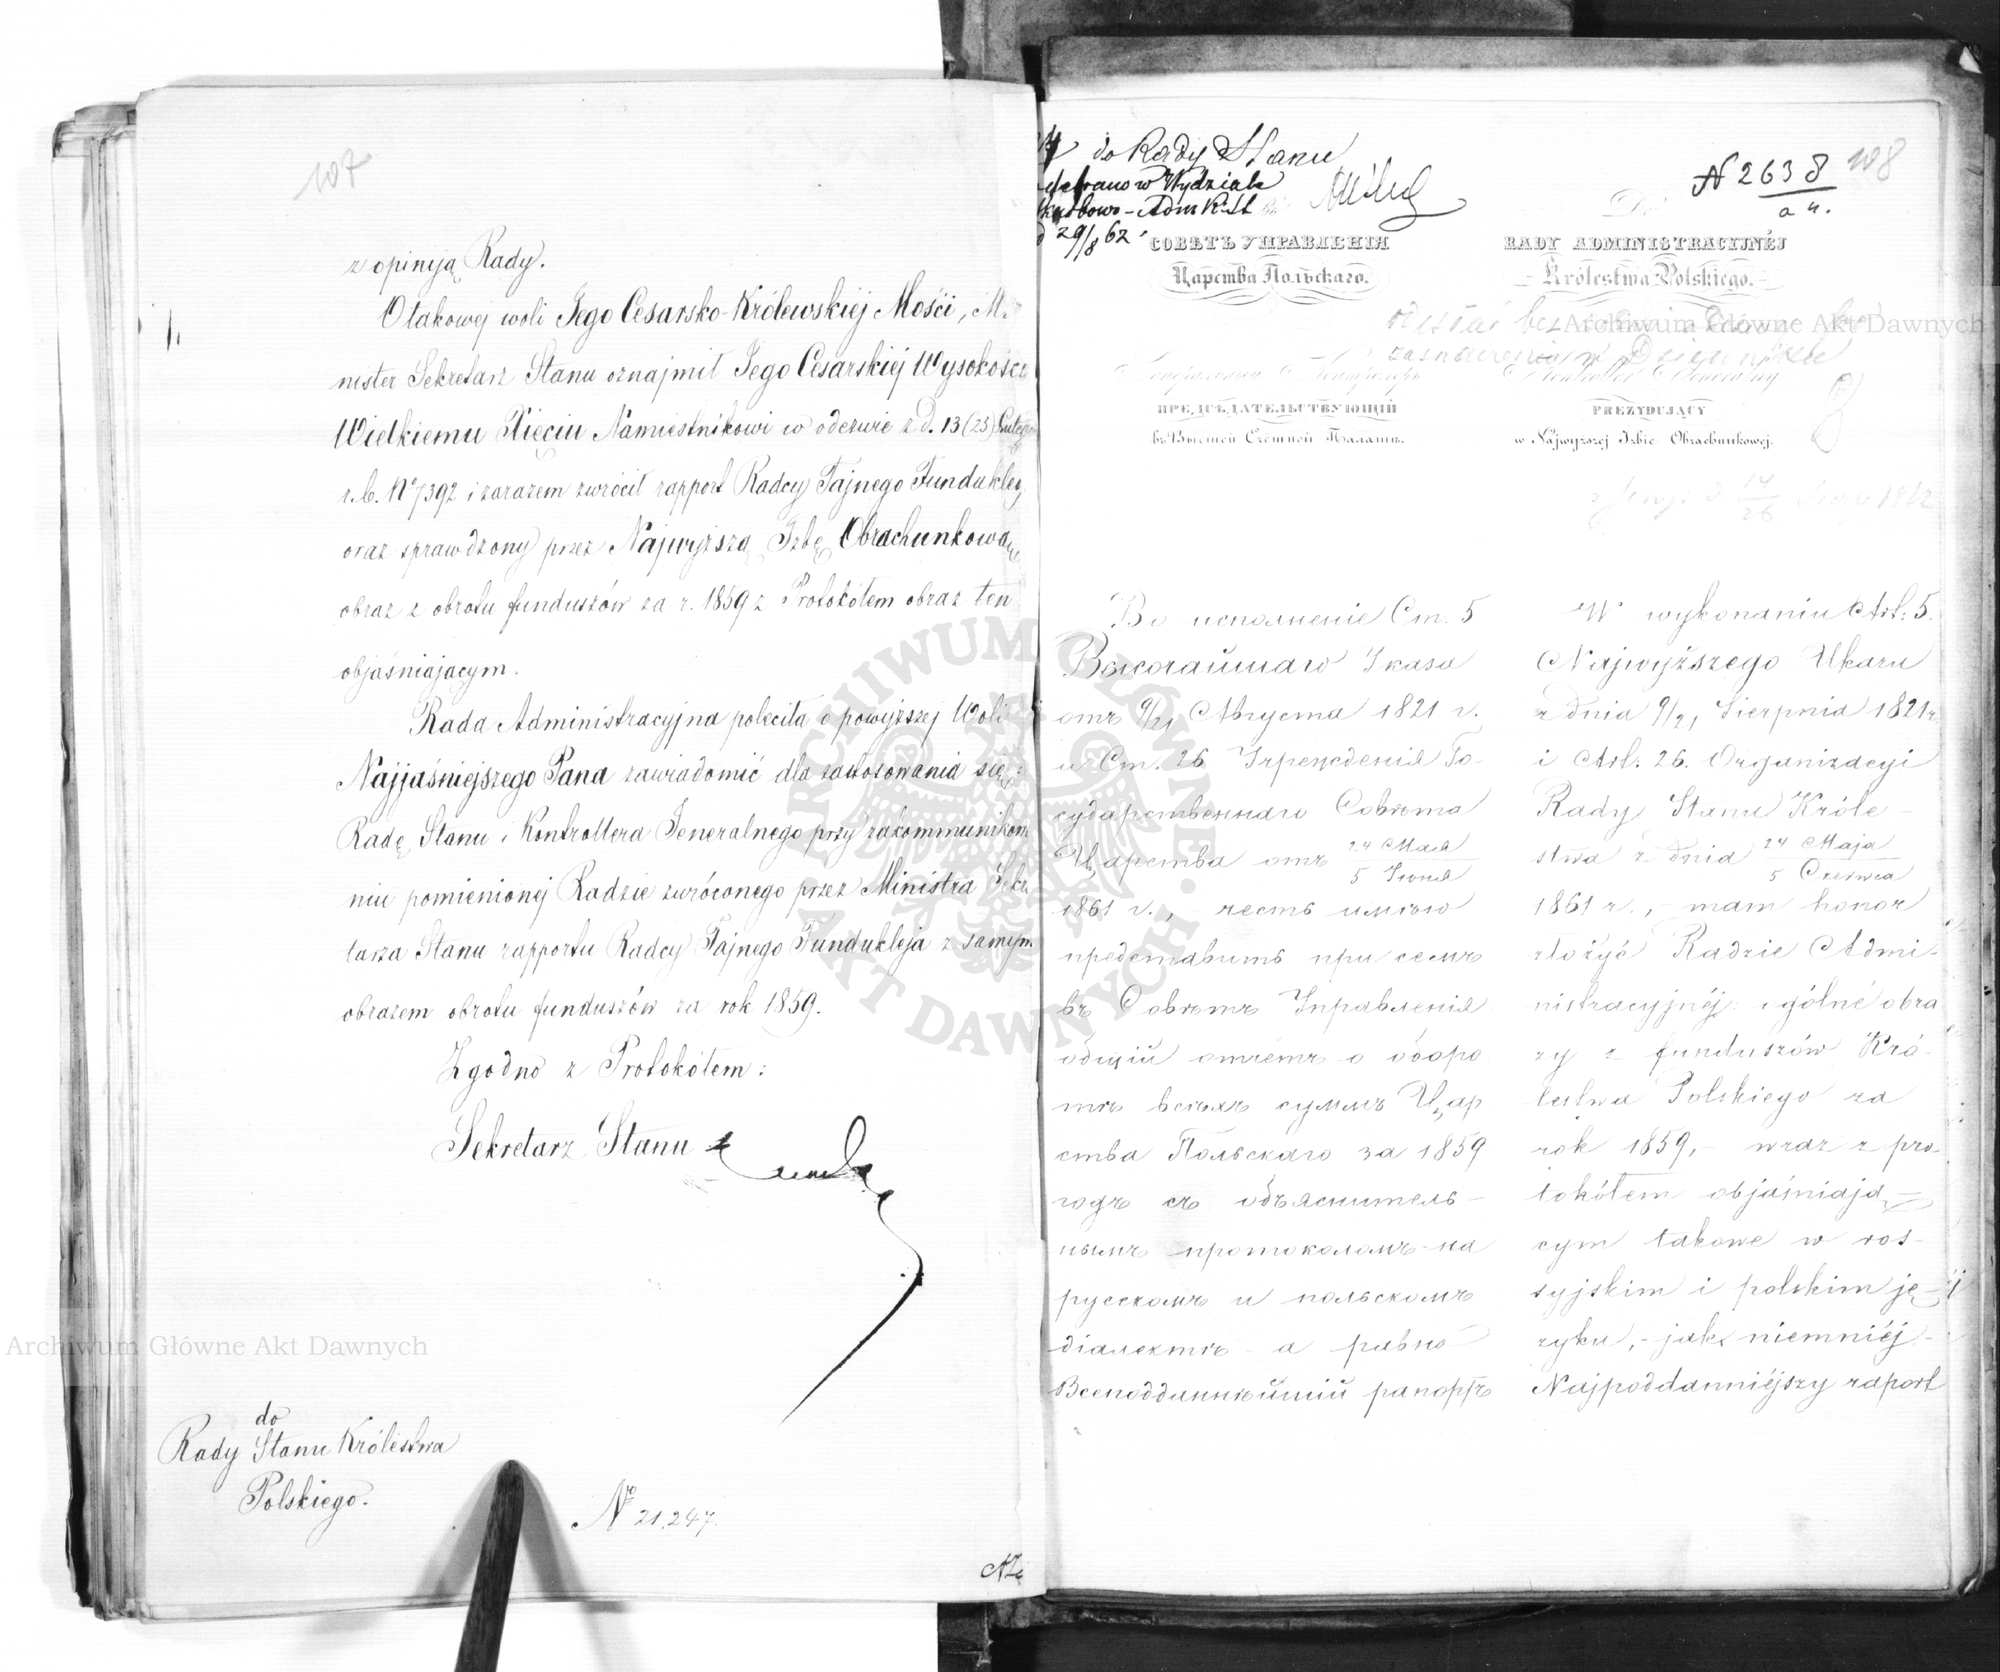 107
z opinją Rady.
O takowej woli Jego Cesarsko-Królewskiéj Mości, Mi-
nister Sekretarz Stanu oznajmił Jego Cesarskiéj Wysokości
Wielkiemu Xięciu Namiestnikowi w odezwie z d. 13 (25) Lutego
r. b. No 7392 i zarazem zwrócił rapport Radcy Tajnego Funduklej
oraz sprawdzony przez Najwyższą Izbę Obrachunkową
obraz z obrotu funduszów za r. 1859 z Protokółem obraz ten
objaśniającym.
Rada Administracyjna poleciła o powyższej Woli
Najjaśniejszego Pana zawiadomić dla zastosowania się:
Radę Stanu i Kontrollera Jeneralnego przy zakommuniko
niu pomienionej Radzie zwróconego przez Ministra Sekre
tarza Stanu rapportu Radcy Tajnego Fundukleja z samym
obrazem obrotu funduszów za rok 1859.
Zgodno z Protokółem:
Sekretarz Stanu
do
Rady Stanu Królestwa
Polskiego.
No 21,247.
108
do Rady Stanu
w Wydziale
29/8 62
N 2638
Do
СОВѢТЪ УПРАВЛЕНІЯ
Царства Польскаго.
Генеральный Контролеръ
ПРЕДСѢДАТЕЛЬСТВУЮЩІЙ
въ Высшей Счетной Палатѣ.
RADY ADMINISTRACYJNÉJ
Królestwa Polskiego.
Kontroller Generalny
PREZYDUJĄCY
w Najwyższej Izbie Obrachunkowej.
14
26
1862
Во исполненіе Ст. 5
Высочайшаго Указа
отъ 9/21 Августа 1821 г.
и Ст. 26 Учрежденія Го-
сударственнаго Совѣта
Царства отъ 24 Мая
5 Іюня
1861 г., - честь имѣю
представить при семъ
въ Совѣтъ Управленія
общій отчетъ о оборо
тѣ всѣхъ суммъ Цар
ства Польскаго за 1859
годъ съ объяснитель-
нымъ протоколомъ на
русскомъ и польскомъ
діалектѣ а равно
Всеподданнѣйшій рапортъ
W wykonaniu Art. 5.
Najwyższego Ukazu
z dnia 9/21 Sierpnia 1821 r.
i Art. 26. Organizacyi
Rady Stanu Króle-
stwa z dnia 24 Maja
5 Czerwca
1861 r., - mam honor
złożyć Radzie Admi-
nistracyjnéj: ogólné obra
zy z funduszów Kró-
lestwa Polskiego za
rok 1859, - wraz z pro-
tokółem objaśniają-
cym takowe w ros-
syjskim i polskim ję-
zyku, - jak niemniéj -
Najpoddanniéjszy raport